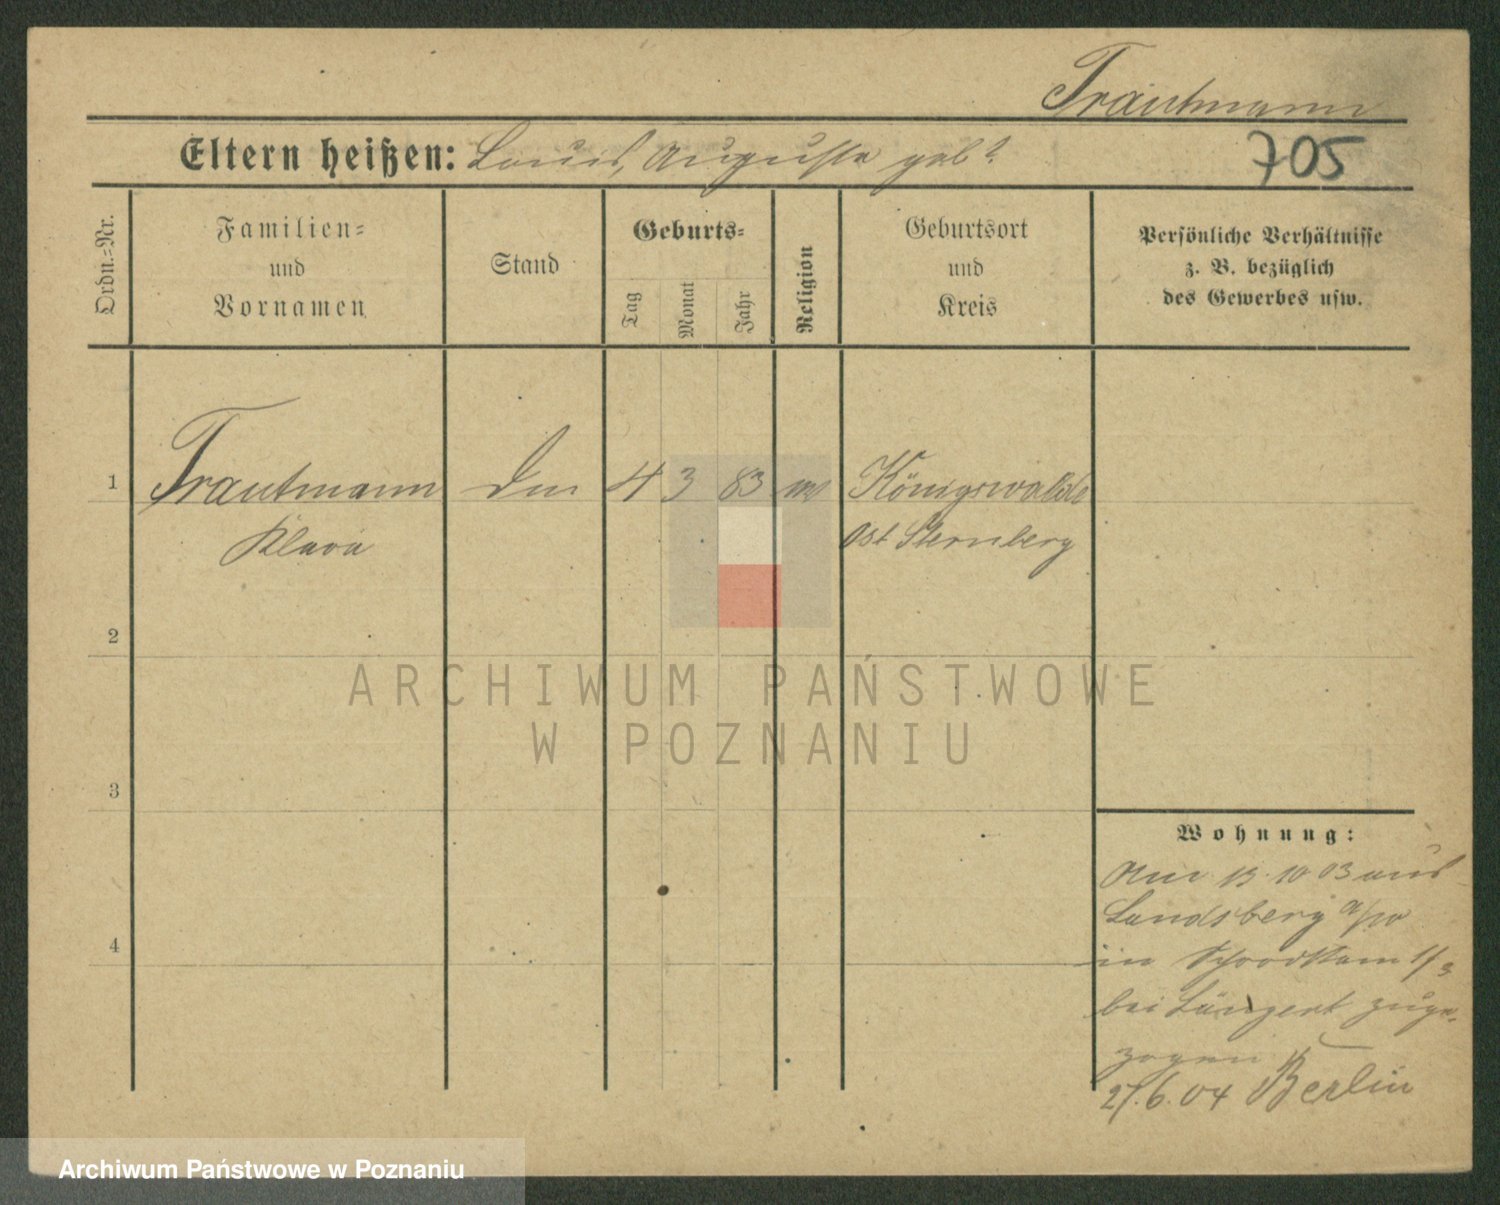 Trautmann
Eltern heißen: Louis, Auguste geb?
705
Ordn.=Nr.
Familien=
und
Vornamen
Stand
Geburts=
Tag
Monat
Jahr
Religion
Geburtsort
und
Kreis
Persönliche Verhältnisse
z. B. bezüglich
des Gewerbes usw.
1 Trautmann 4 3 83 Königswalde
Klara Ost Sternberg
2
3
4
Wohnung:
Am 13.10 03 aus
Landsberg a/W
in 1/3
bei zuge-
zogen
27.6.04 Berlin
ARCHIWUM PAŃSTWOWE
W POZNANIU
Archiwum Państwowe w Poznaniu